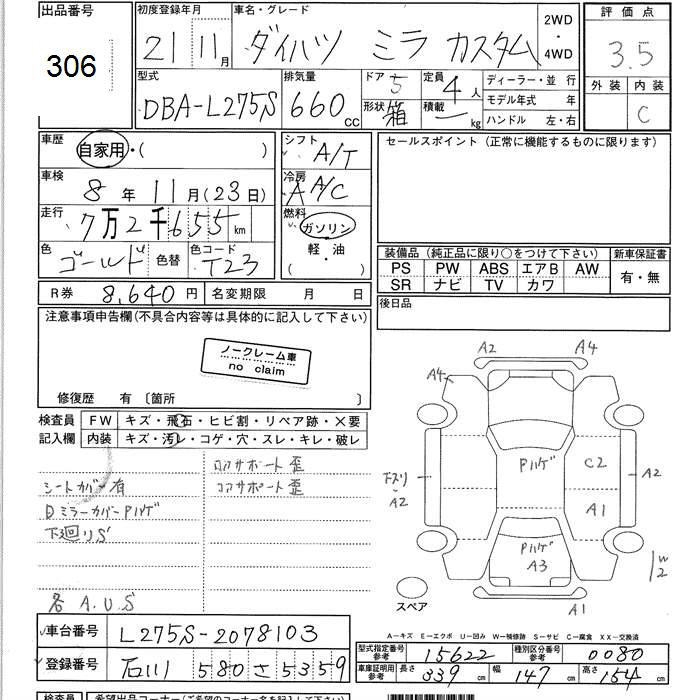 出品番号 306
初度登録年月 21 11月
車名・グレード ダイハツ ミラ カスタム
2WD・4WD
評価点 3.5
外装 内装 C
型式 DBA-L275S
排気量 660 cc
ドア 5 形状 箱
定員 4 人 積載 kg
ディーラー・並 行
モデル年式 年
ハンドル 左・右
車歴 自家用・( )
シフト A/T
セールスポイント (正常に機能するものに限ります)
車検 8年 11月(23日)
冷房 A/C
走行 7万2千655 km
燃料 ガソリン 軽・油 ( )
色 ゴールド 色替 色コード T23
装備品 (純正品に限り○をつけて下さい) 新車保証書
PS PW ABS エアB AW 有・無
SR ナビ TV カワ
R券 8,640円 名変期限 月 日
後日品
注意事項申告欄(不具合内容等は具体的に記入して下さい)
ノークレーム車
no claim
修復歴 有 〔箇所 〕
検査員記入欄
FW キズ・飛石・ヒビ割・リペア跡・×要
内装 キズ・汚レ・コゲ・穴・スレ・キレ・破レ
コアサポート歪
コアサポート歪
シートカバー有
ミラーカバーPハゲ
下廻りS
各 A.U.S
A2 A4
A4
Pハゲ C2
下スリ A2 A2
A1
Pハゲ A3
W2
A1
スペア
車台番号 L275S-2078103
登録番号 石川 580 さ 5359
A−キズ E−エクボ U−凹み W−補修跡 S−サビ C−腐食 XX−交換済
型式指定番号 参考 15622 種別区分番号 参考 0080
車庫証明用 参考 長さ 339 cm 幅 147 cm 高さ 154 cm
検査員 希望出品コーナー